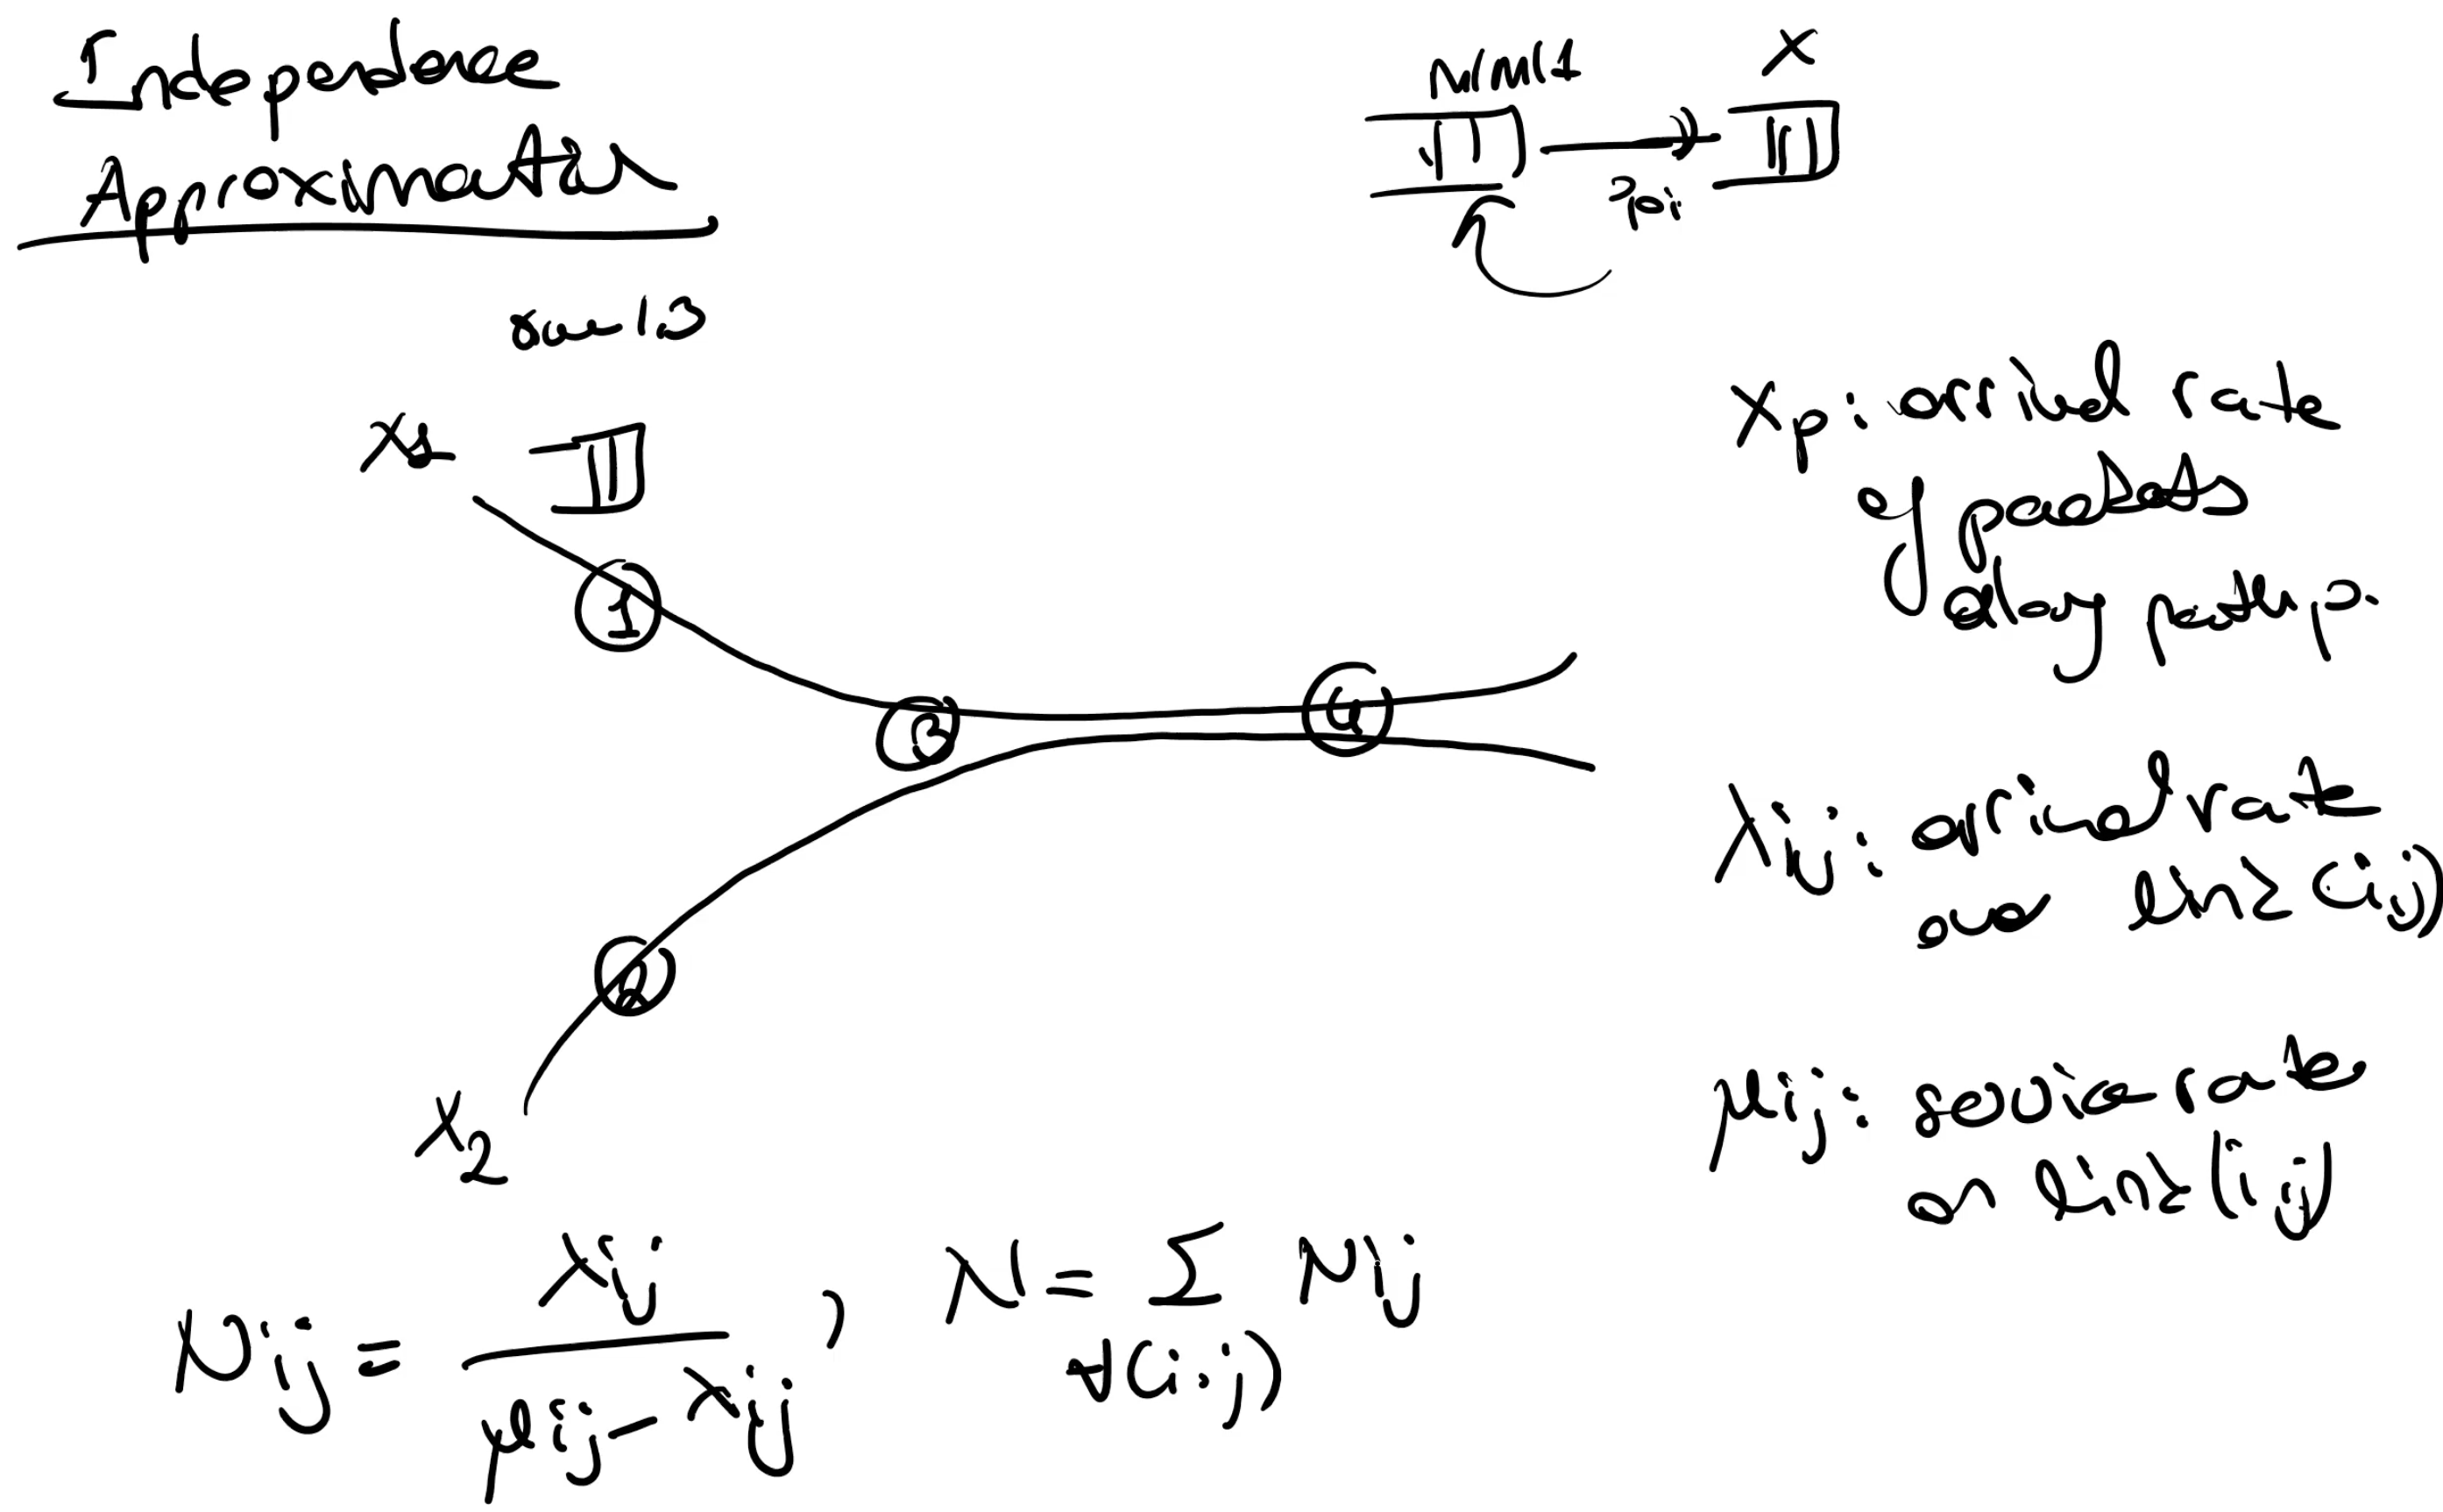 Independence
Approximation
M/M/1
X
λ1
1
3
4
2
λ2
Xp: arrival rate
of packets
along path p.
λij: arrival rate
over link (i,j)
μij: service rate
on link (i,j)
Nij = λij / (μij - λij) , N = Σ Nij
∀(i,j)